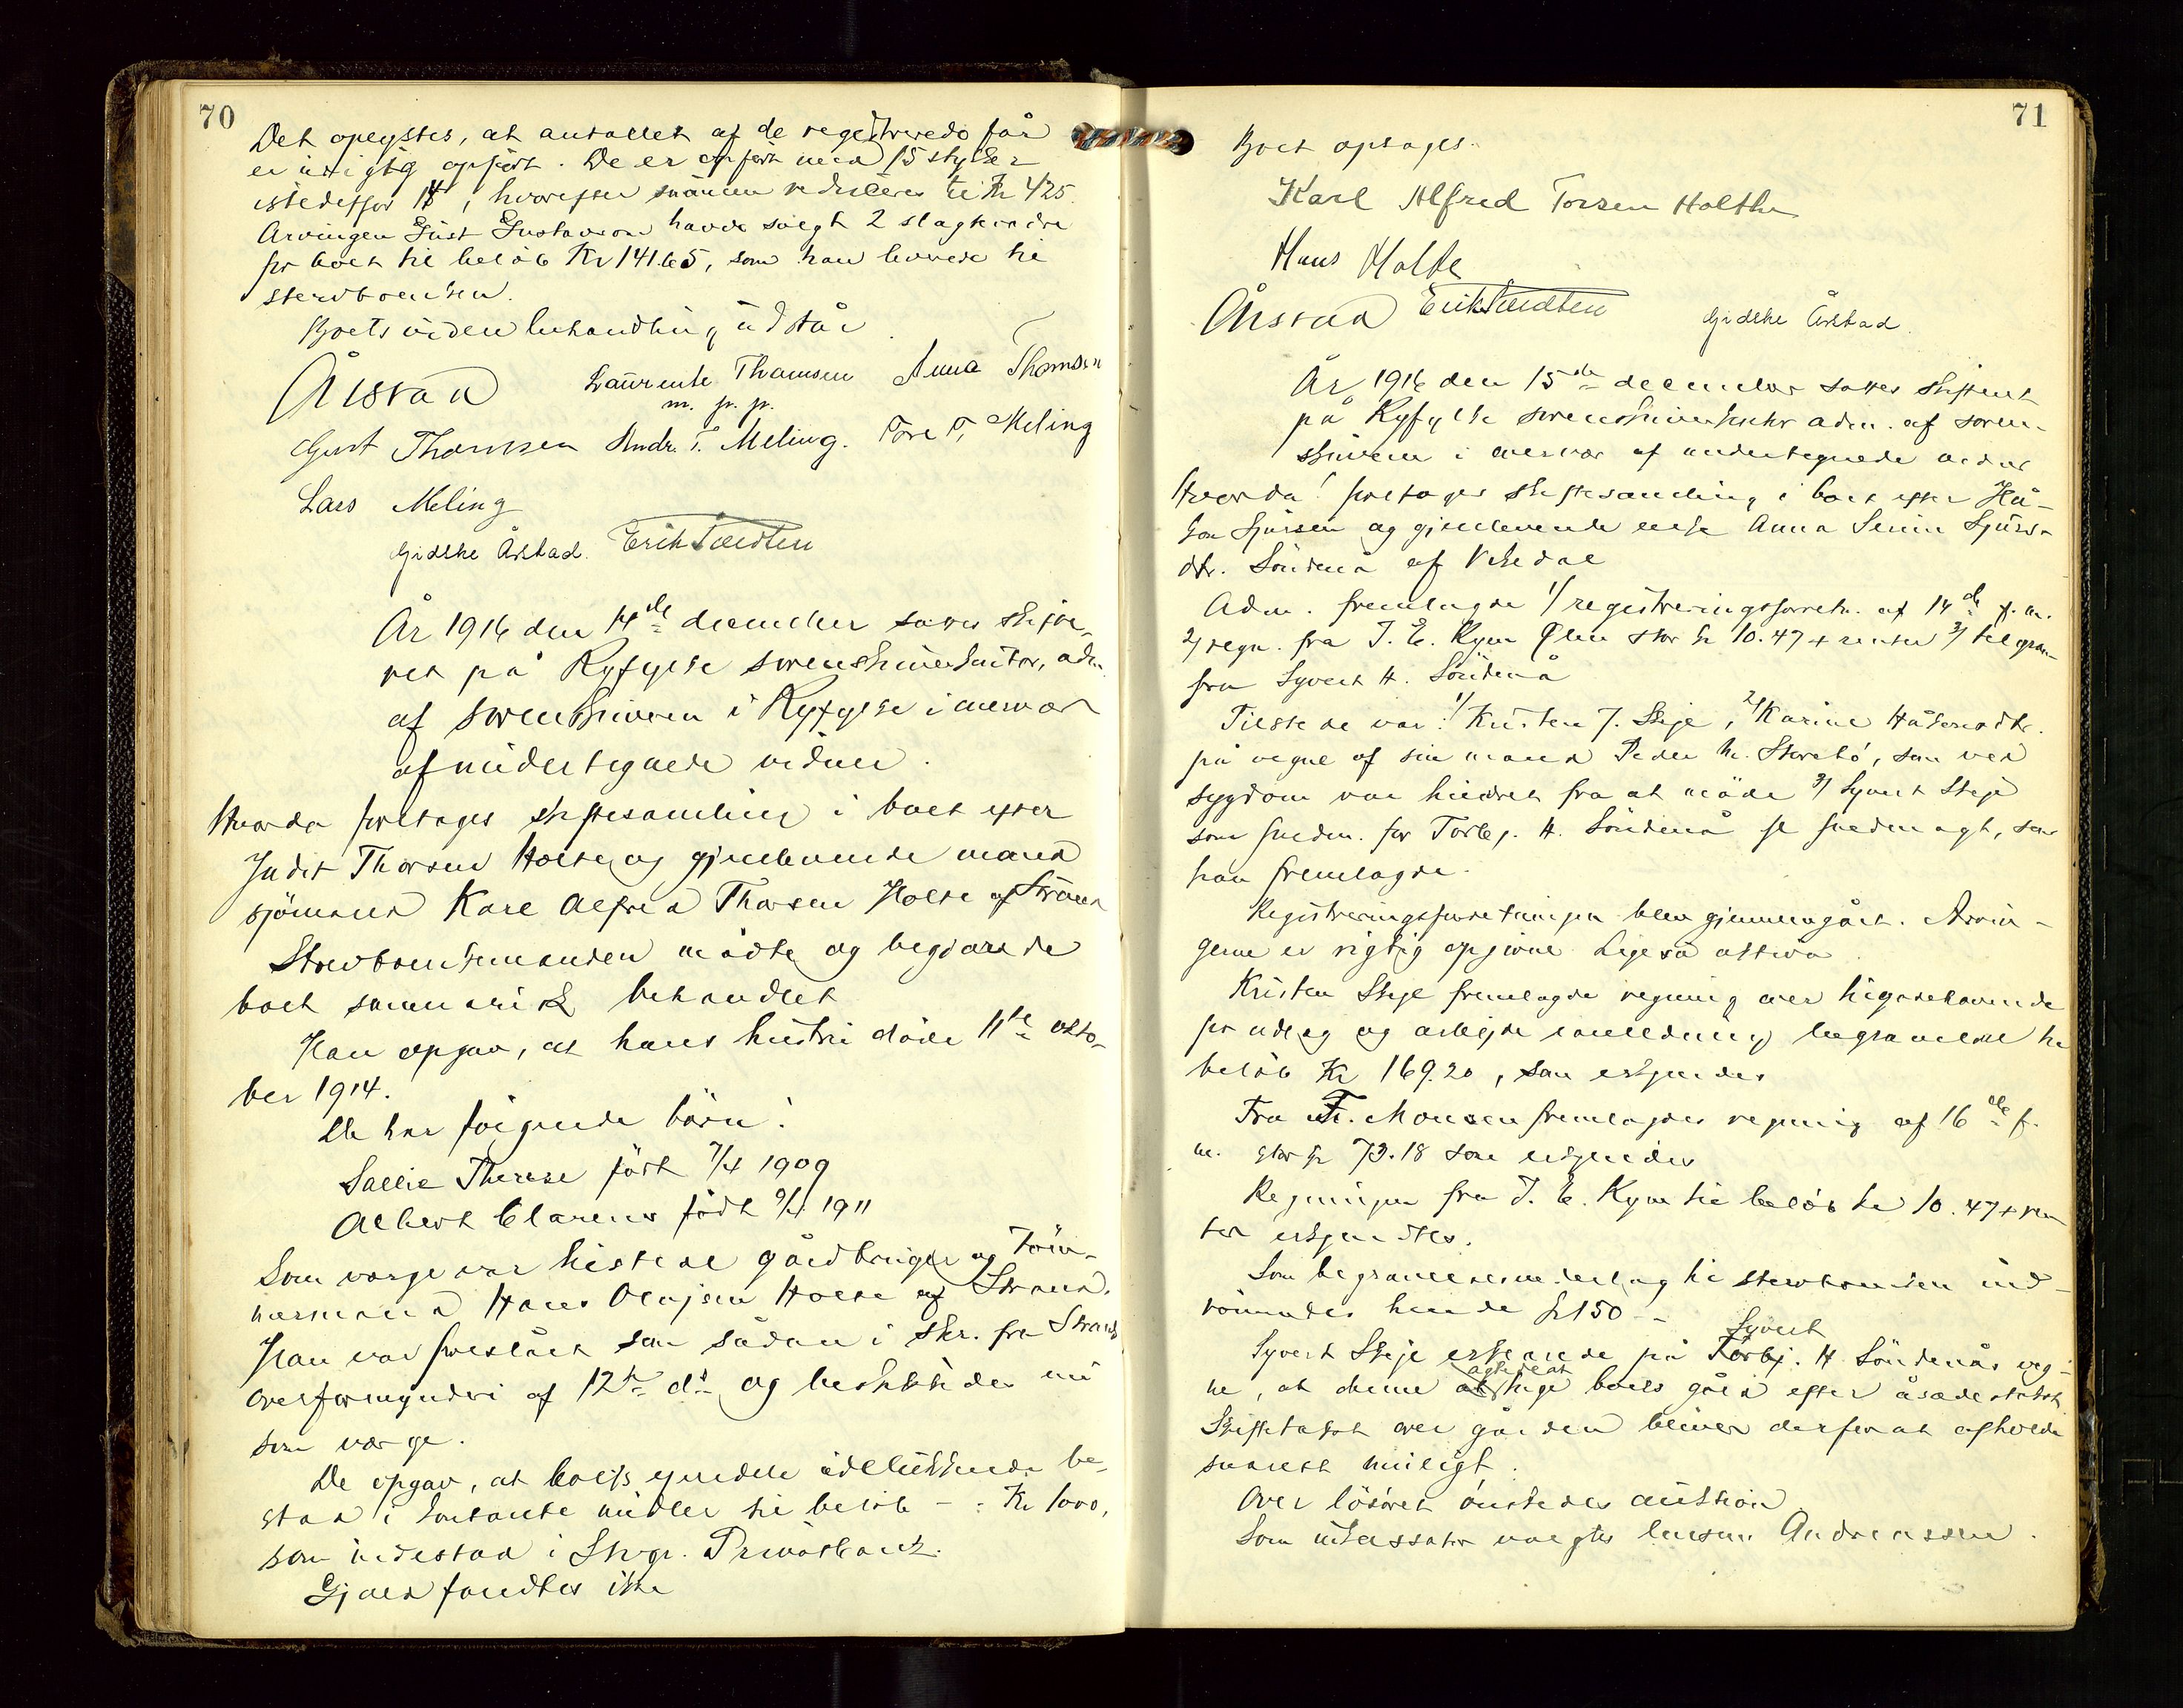 70
Det oplystes, at antallet af de registrerede får
er urigtig opført. De er opført med 15 stykker
istedetfor 14, hvorefter summen reduceres til Kr 425.
Arvingen Gust Gustavson havde solgt 2 slagtekreature
for boet til beløb Kr 141.65, som han leverede til
stervboenken.
Boets viden behandling udstår
Årstad Laurente Thomsen Anna Thomsen
m. p. p.
Gust Thomsen Andr. T. Meling. Tore T. Meling
Lars Meling
Gidske Årstad. Erik Tveidten
År 1916 den 14de december sattes skifte-
ret på Ryfylke sorenskriverkontor, adm.
af sorenskriveren i Ryfylke i overvær
af undertegnede vidner.
Hvorda foretoges skiftesamling i boet efter
Judit Thorsen Holte og gjenlevende mand
sjømand Karl Alfred Thorsen Holte af Strand
Stervboenkemanden mødte og begjærede
boet summarisk behandlet
Han opgav, at hans hustru døde 11te okto-
ber 1914.
De har følgende børn:
Sallie Therese født 7/4 1909
Albert Clarens født 9/4 1911
Som verge var tilstede gårdbruger og tøm-
mermand Hans Olajsen Holte af Strand.
Han var foreslået som sådan i skr. fra Strand
overformynderi af 12te ds og beskikkedes nu
som verge.
De opgav, at boets eiendele udelukkende be-
stod i kontante midler til beløb - : Kr 1000,
som indestod i Stvgr. Privatbank.
Gjæld fandtes ikke
71
Boet optages.
Karl Alfred Torsen Holthe
Hans Holte
Årstad Erik Tveidten Gidske Årstad.
År 1916 den 15de december sattes skifteret
på Ryfylke sorenskriverkontor adm. af soren-
skriveren i overvær af undertegnede vidner
Hvorda! foretoges skiftesamling i boet efter Hå-
kon Sjursen og gjenlevende enke Anna Serine Sjurs-
dtr. Søndenå af Vikedal
Adm. fremlagde 1/ registreringsforretn. af 14de f. m.
2/ regn. fra J. E. Kym Ølen stor kr 10.47 + renter 3/ telegram
fra Syvert H. Søndenå
Tilstede var: 1/ Kristen J. Skeje, 2/ Karine Håkonsdtr.
på vegne af sin mand Peder M. Storebø, som ved
sygdom var hindret fra at møde 3/ Syvert Skeje
som fuldm. for Torbj. H. Søndenå se fuldmagt, som
han fremlagde.
Registreringsforretningen blev gjennemgået. Arvin-
gerne er rigtig opgivne. Ligeså aktiva.
Kristen Skeje fremlagde regning over tilgodehavende
for udlæg og arbejde i anledning begravelse til
beløb Kr 169.20, som erkjendes
Fra Fr. Monsen fremlagdes regning af 16de f.
m. stor kr 73.18 som erkjendes
Regningen fra J. E. Kym til beløb kr 10.47 + ren-
ter erkjendtes.
Som begravelsesvederlag til stervboenken ind-
rømmedes hende kr 150 --
Syvert
Syvert Skeje erklærede på Torbj. H. Søndenås veg-
agtede at
ne, at denne at tage boets gård efter åsædestakst
Skiftetakst over gården bliver derfor at afholde
snarest muligt.
Over løsøret ønskedes auktion
Som inkassator valgtes lensm. Andreassen.